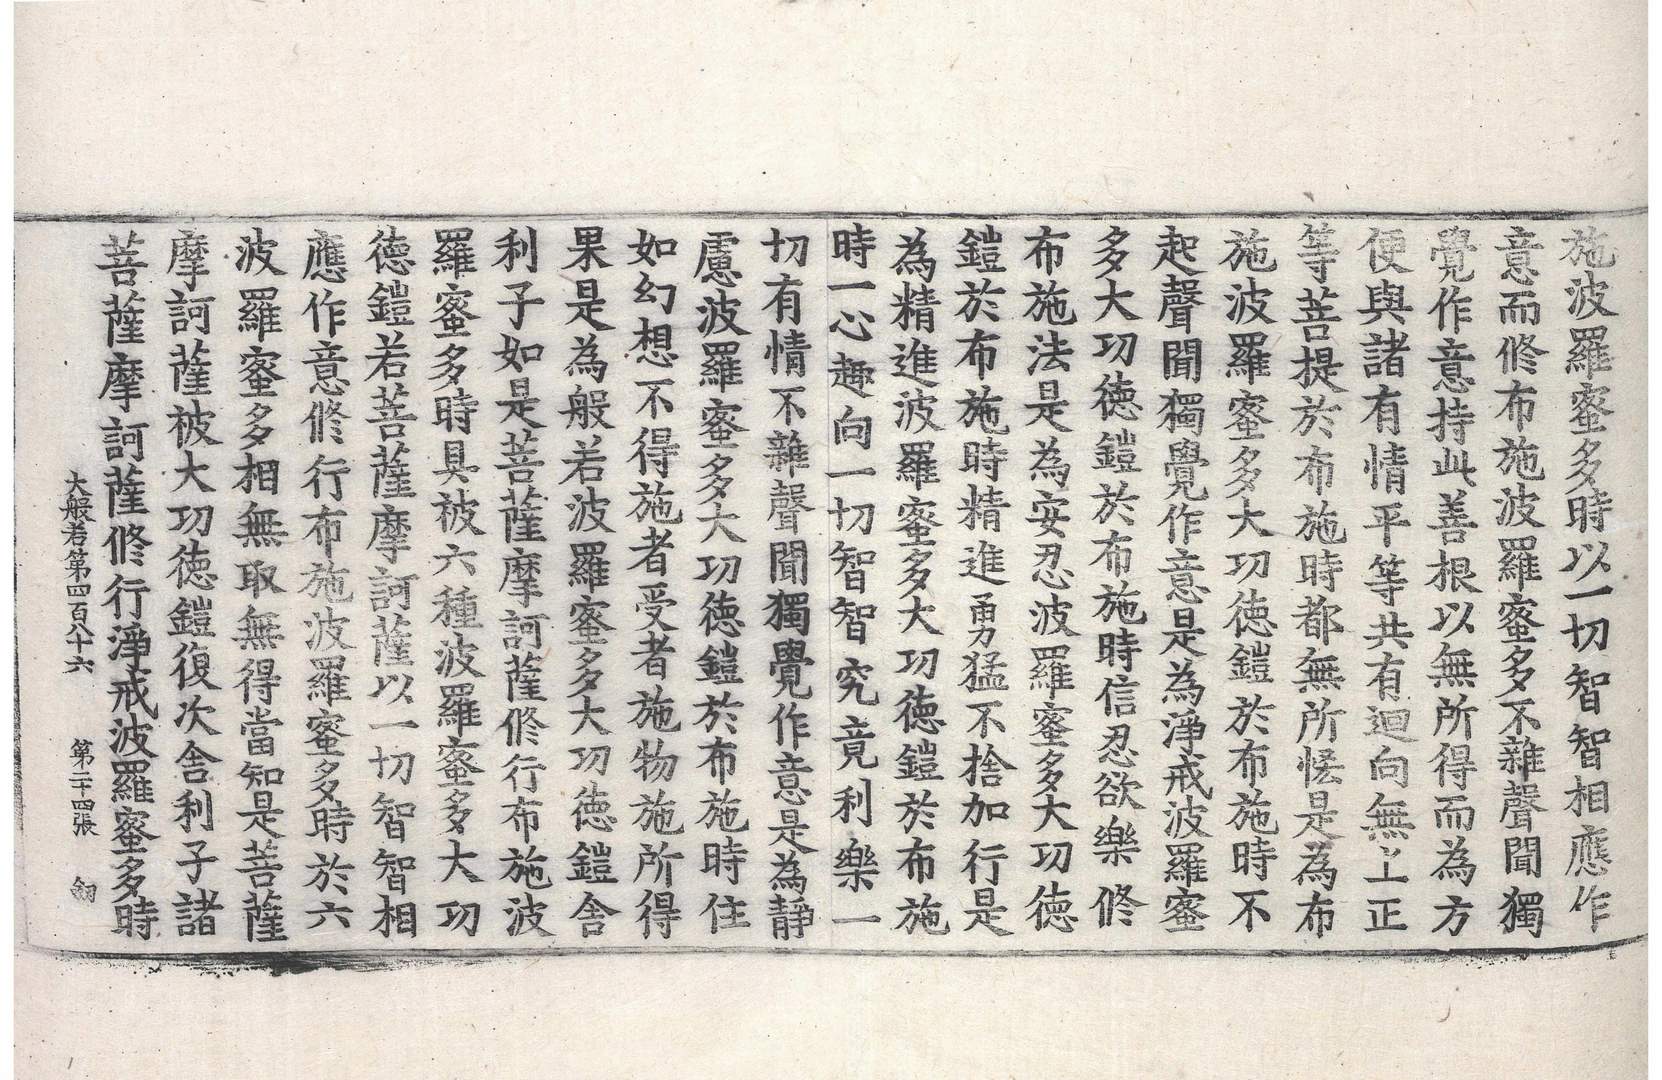 施波羅蜜多時以一切智智相應作
意而修布施波羅蜜多不雜聲聞獨
覺作意持此善根以無所得而為方
便與諸有情平等共有迴向無上正
等菩提於布施時都無所恡是為布
施波羅蜜多大功德鎧於布施時不
起聲聞獨覺作意是為淨戒波羅蜜
多大功德鎧於布施時信忍欲樂修
布施法是為安忍波羅蜜多大功德
鎧於布施時精進勇猛不捨加行是
為精進波羅蜜多大功德鎧於布施
時一心趣向一切智智究竟利樂一
切有情不雜聲聞獨覺作意是為靜
慮波羅蜜多大功德鎧於布施時住
如幻想不得施者受者施物施所得
果是為般若波羅蜜多大功德鎧舍
利子如是菩薩摩訶薩修行布施波
羅蜜多時具被六種波羅蜜多大功
德鎧若菩薩摩訶薩以一切智智相
應作意修行布施波羅蜜多時於六
波羅蜜多相無取無得當知是菩薩
摩訶薩被大功德鎧復次舍利子諸
菩薩摩訶薩修行淨戒波羅蜜多時
大般若第四百八十六 第二十四張